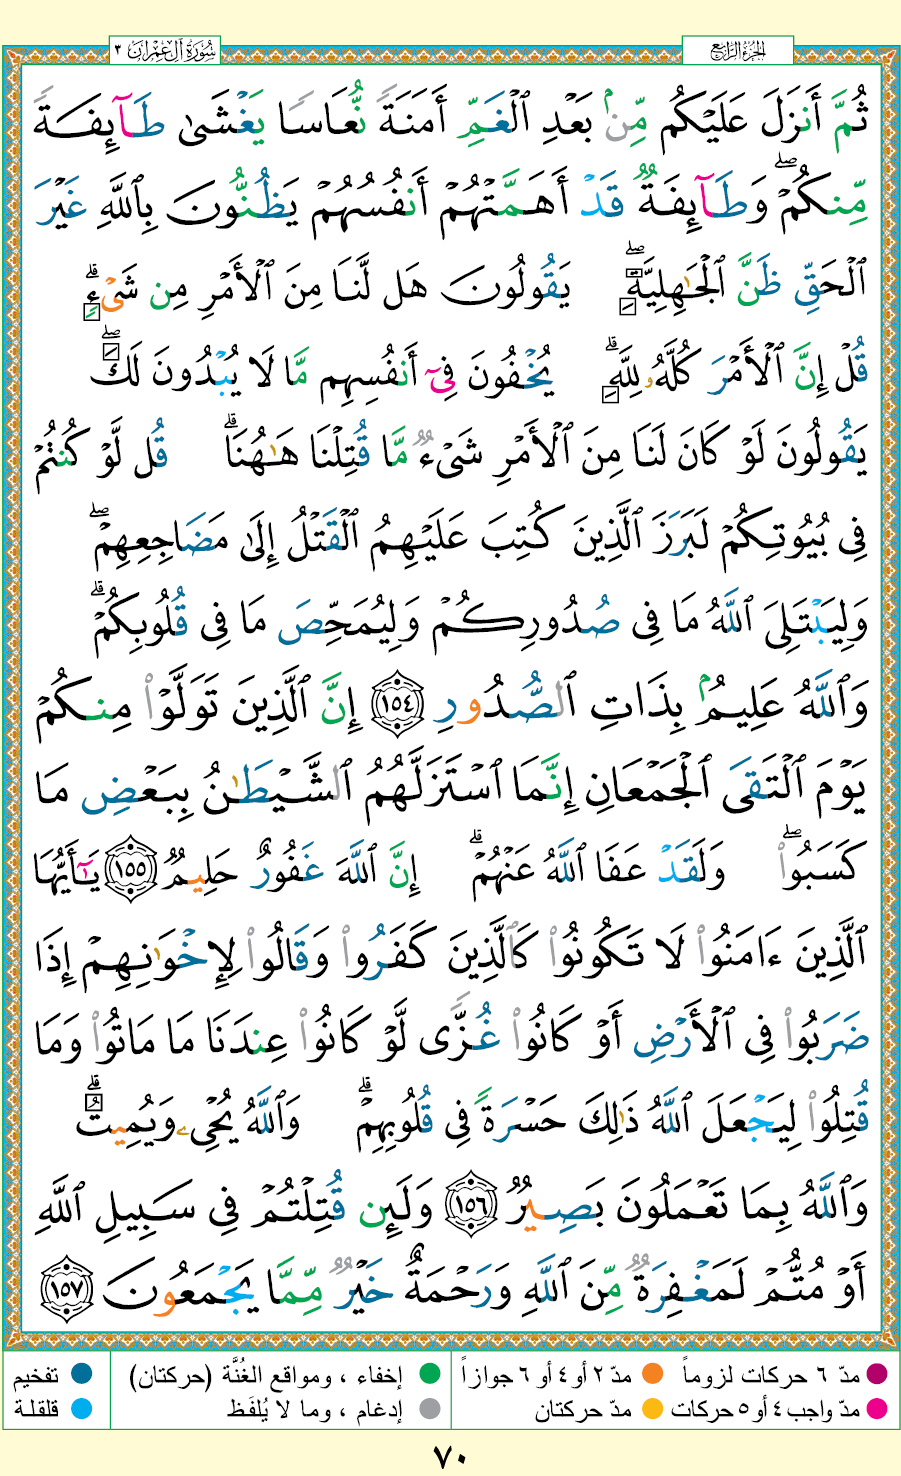 الجزء الرابع
سورة آل عمران ٣
ثُمَّ أَنزَلَ عَلَيۡكُم مِّنۢ بَعۡدِ ٱلۡغَمِّ أَمَنَةٗ نُّعَاسٗا يَغۡشَىٰ طَآئِفَةٗ
مِّنكُمۡۖ وَطَآئِفَةٞ قَدۡ أَهَمَّتۡهُمۡ أَنفُسُهُمۡ يَظُنُّونَ بِٱللَّهِ غَيۡرَ
ٱلۡحَقِّ ظَنَّ ٱلۡجَٰهِلِيَّةِۖ يَقُولُونَ هَل لَّنَا مِنَ ٱلۡأَمۡرِ مِن شَيۡءٖۗ
قُلۡ إِنَّ ٱلۡأَمۡرَ كُلَّهُۥ لِلَّهِۗ يُخۡفُونَ فِيٓ أَنفُسِهِم مَّا لَا يُبۡدُونَ لَكَۖ
يَقُولُونَ لَوۡ كَانَ لَنَا مِنَ ٱلۡأَمۡرِ شَيۡءٞ مَّا قُتِلۡنَا هَٰهُنَاۗ قُل لَّوۡ كُنتُمۡ
فِي بُيُوتِكُمۡ لَبَرَزَ ٱلَّذِينَ كُتِبَ عَلَيۡهِمُ ٱلۡقَتۡلُ إِلَىٰ مَضَاجِعِهِمۡۖ
وَلِيَبۡتَلِيَ ٱللَّهُ مَا فِي صُدُورِكُمۡ وَلِيُمَحِّصَ مَا فِي قُلُوبِكُمۡۗ
وَٱللَّهُ عَلِيمُۢ بِذَاتِ ٱلصُّدُورِ ١٥٤ إِنَّ ٱلَّذِينَ تَوَلَّوۡاْ مِنكُمۡ
يَوۡمَ ٱلۡتَقَى ٱلۡجَمۡعَانِ إِنَّمَا ٱسۡتَزَلَّهُمُ ٱلشَّيۡطَٰنُ بِبَعۡضِ مَا
كَسَبُواْۖ وَلَقَدۡ عَفَا ٱللَّهُ عَنۡهُمۡۗ إِنَّ ٱللَّهَ غَفُورٌ حَلِيمٞ ١٥٥ يَٰٓأَيُّهَا
ٱلَّذِينَ ءَامَنُواْ لَا تَكُونُواْ كَٱلَّذِينَ كَفَرُواْ وَقَالُواْ لِإِخۡوَٰنِهِمۡ إِذَا
ضَرَبُواْ فِي ٱلۡأَرۡضِ أَوۡ كَانُواْ غُزّٗى لَّوۡ كَانُواْ عِندَنَا مَا مَاتُواْ وَمَا
قُتِلُواْ لِيَجۡعَلَ ٱللَّهُ ذَٰلِكَ حَسۡرَةٗ فِي قُلُوبِهِمۡۗ وَٱللَّهُ يُحۡيِۦ وَيُمِيتُۗ
وَٱللَّهُ بِمَا تَعۡمَلُونَ بَصِيرٞ ١٥٦ وَلَئِن قُتِلۡتُمۡ فِي سَبِيلِ ٱللَّهِ
أَوۡ مُتُّمۡ لَمَغۡفِرَةٞ مِّنَ ٱللَّهِ وَرَحۡمَةٌ خَيۡرٞ مِّمَّا يَجۡمَعُونَ ١٥٧
مدّ ٦ حركات لزوماً مدّ ٢ أو ٤ أو ٦ جوازاً إخفاء ، ومواقع الغُنَّة (حركتان) تفخيم
مدّ واجب ٤ أو ٥ حركات مدّ حركتان إدغام ، وما لا يُلفَظ قلقلة
٧٠